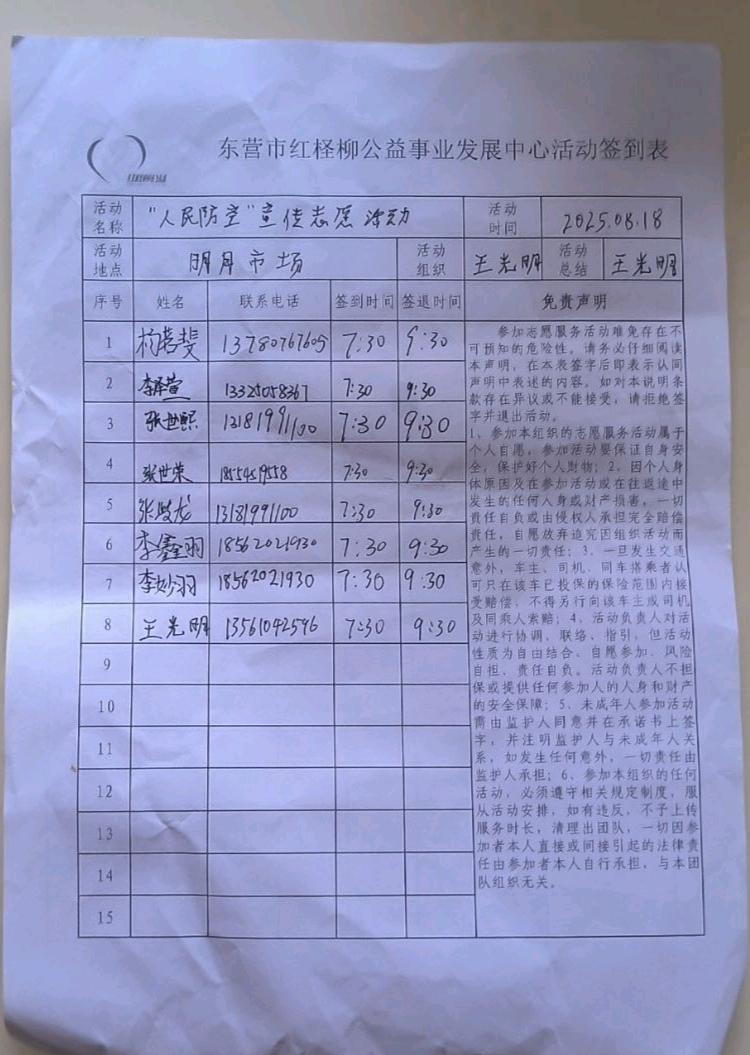 东营市红柽柳公益事业发展中心活动签到表
活动名称 "人民防空"宣传志愿活动 活动时间 2025.08.18
活动地点 明月市场 活动组织 王光明 活动总结 王光明
序号 姓名 联系电话 签到时间 签退时间 免责声明
1 13780767605 7:30 9:30
2 李泽萱 13325058367 7:30 9:30
3 张世熙 13181991100 7:30 9:30
4 张世荣 18554519558 7:30 9:30
5 张殿龙 13181991100 7:30 9:30
6 李鑫羽 18562021930 7:30 9:30
7 李妙羽 18562021930 7:30 9:30
8 王光明 13561042596 7:30 9:30
9
10
11
12
13
14
15
参加志愿服务活动难免存在不
可预知的危险性。请务必仔细阅读
本声明，在本表签字后即表示认同
声明中表述的内容。如对本说明条
款存在异议或不能接受，请拒绝签
字并退出活动。
1、参加本组织的志愿服务活动属于
个人自愿，参加活动要保证自身安
全，保护好个人财物；2、因个人身
体原因及在参加活动或在往返途中
发生的任何人身或财产损害，一切
责任自负或由侵权人承担完全赔偿
责任，自愿放弃追究因组织活动而
产生的一切责任；3、一旦发生交通
意外，车主、司机、同车搭乘者认
可只在该车已投保的保险范围内接
受赔偿，不得另行向该车主或司机
及同乘人索赔；4、活动负责人对活
动进行协调、联络、指引，但活动
性质为自由结合、自愿参加、风险
自担、责任自负。活动负责人不担
保或提供任何参加人的人身和财产
的安全保障；5、未成年人参加活动
需由监护人同意并在承诺书上签
字，并注明监护人与未成年人关
系，如发生任何意外，一切责任由
监护人承担；6、参加本组织的任何
活动，必须遵守相关规定制度，服
从活动安排，如有违反，不予上传
服务时长，清理出团队，一切因参
加者本人直接或间接引起的法律责
任由参加者本人自行承担，与本团
队组织无关。